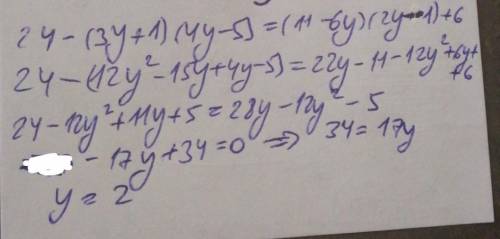 24-(3y+1)(4y-5)=(11-6y)(2y-1)+6
24-(12y²-15y+4y-5)=22y-11-12y²+6y+
+6
24-12y²+11y+5=28y-12y²-5
-17y+34=0 => 34=17y
y=2